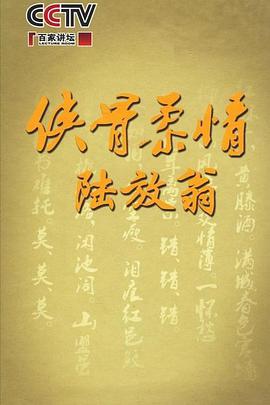 CCTV
百家讲坛
LECTURE ROOM
侠骨柔情
陆放翁
黄滕酒，满城春色宫墙
欢情薄。一怀愁
索。错、错、错。
瘦。泪痕红浥鲛
闲池阁。山盟
书难托。莫、莫、莫。